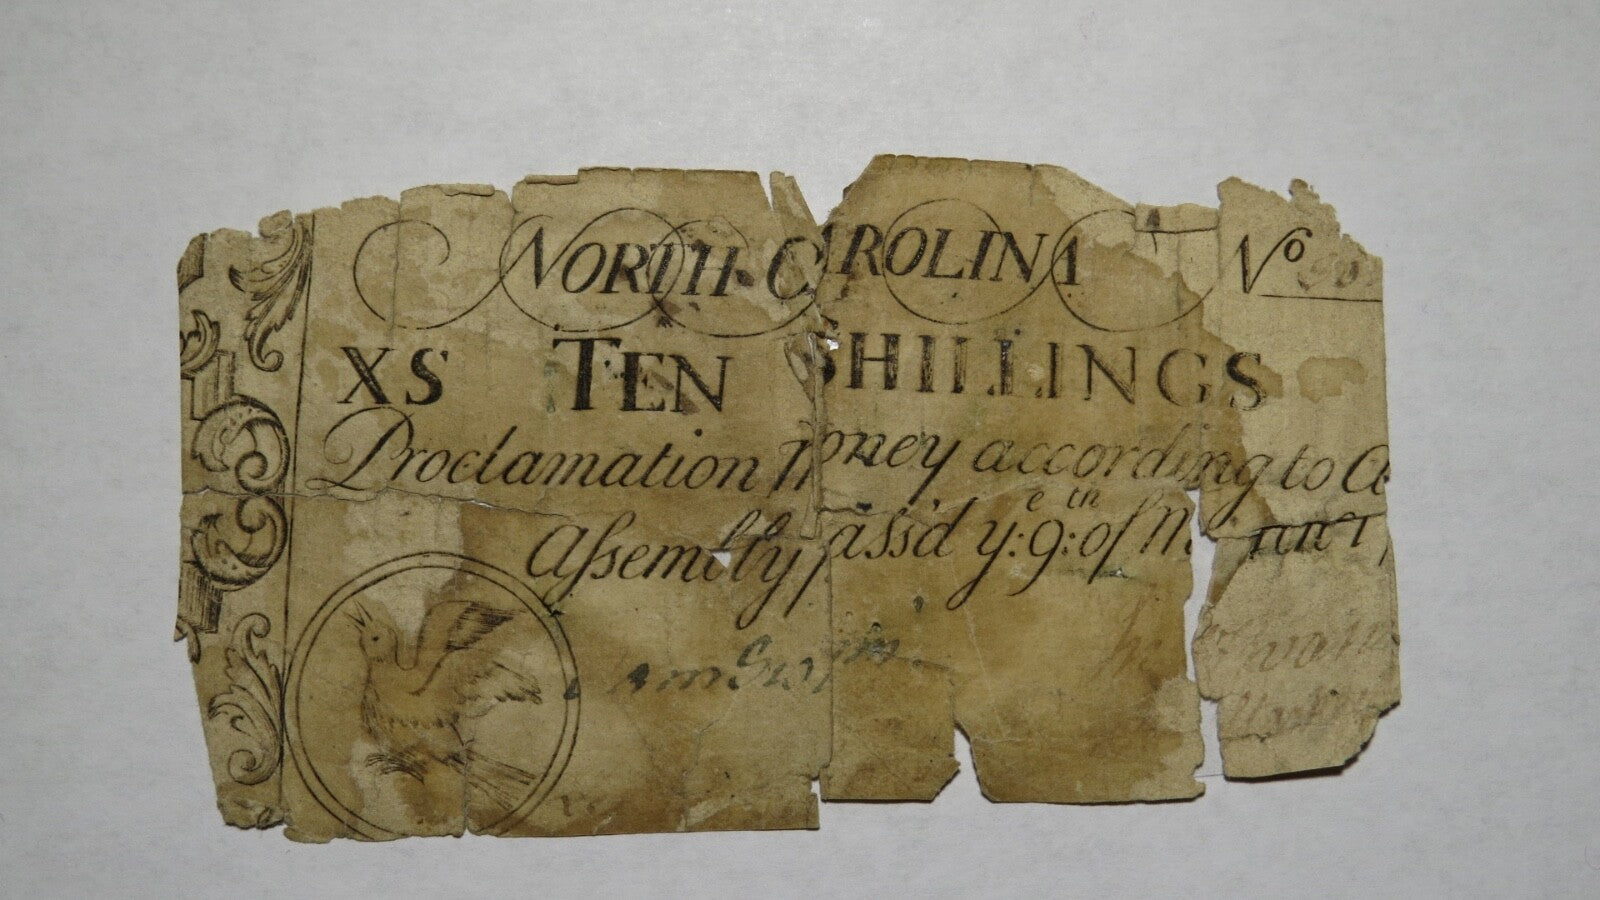 NORTH CAROLINA No
XS TEN SHILLINGS
Proclamation Money according to A
Assembly pass'd ye: 9th: of M